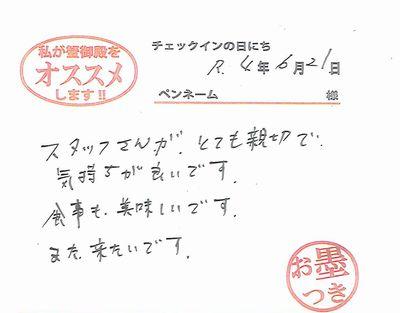 私が篁御殿を
オススメ
します!!
チェックインの日にち
R.4.年6月21日
ペンネーム 様
スタッフさんが、とても親切で
気持ちが良いです。
食事も、美味しいです。
また、来たいです。
お墨
つき